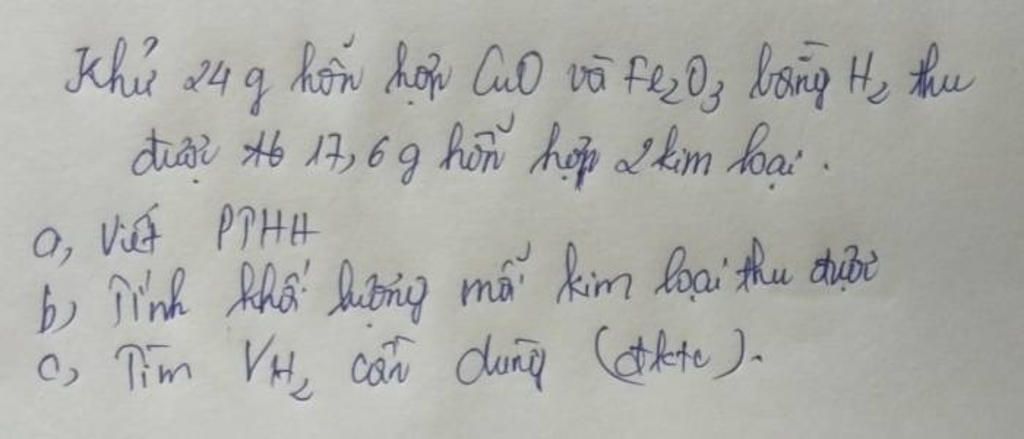 Khử 24 g hỗn hợp CuO và Fe₂O₃ bằng H₂ thu
được 17,6 g hỗn hợp 2 kim loại.
a, Viết PTHH
b, Tính khối lượng mỗi kim loại thu được
c, Tìm VH₂ cần dùng (đktc).